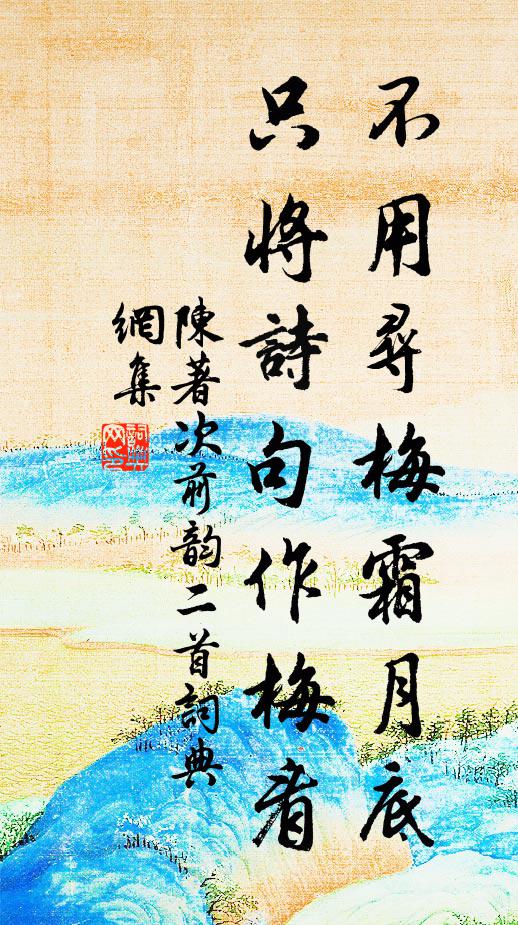 不用尋梅霜月底
只將詩句作梅看
陳著次前韵二首詞典
網集